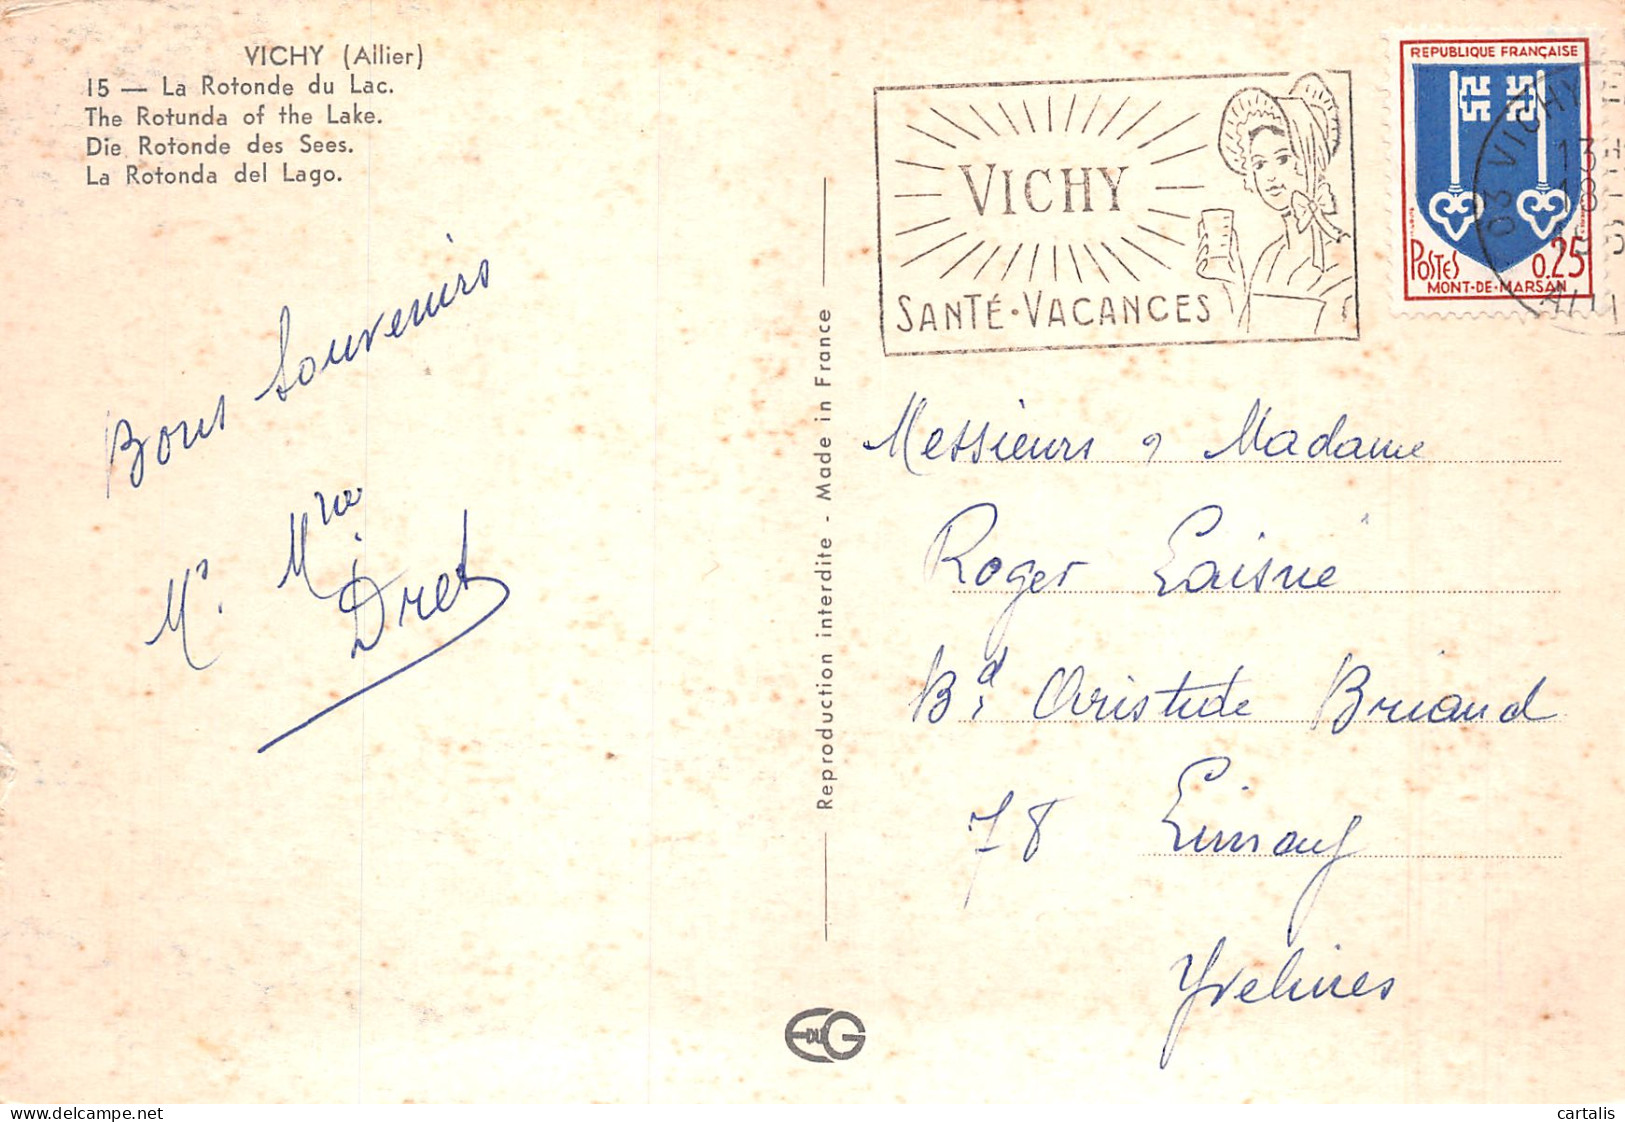 VICHY (Allier)
15 — La Rotonde du Lac.
The Rotunda of the Lake.
Die Rotonde des Sees.
La Rotonda del Lago.
Bons Souvenirs
Mr. Mme
Dret
Reproduction interdite - Made in France
VICHY
SANTÉ·VACANCES
REPUBLIQUE FRANÇAISE
POSTES 0.25
MONT-DE-MARSAN
03 VICHY
13H
18
ALLI
Messieurs, Madame
Roger Laisné
Bd Aristide Briand
78 Limay
Yvelines
EDUG
cartalis